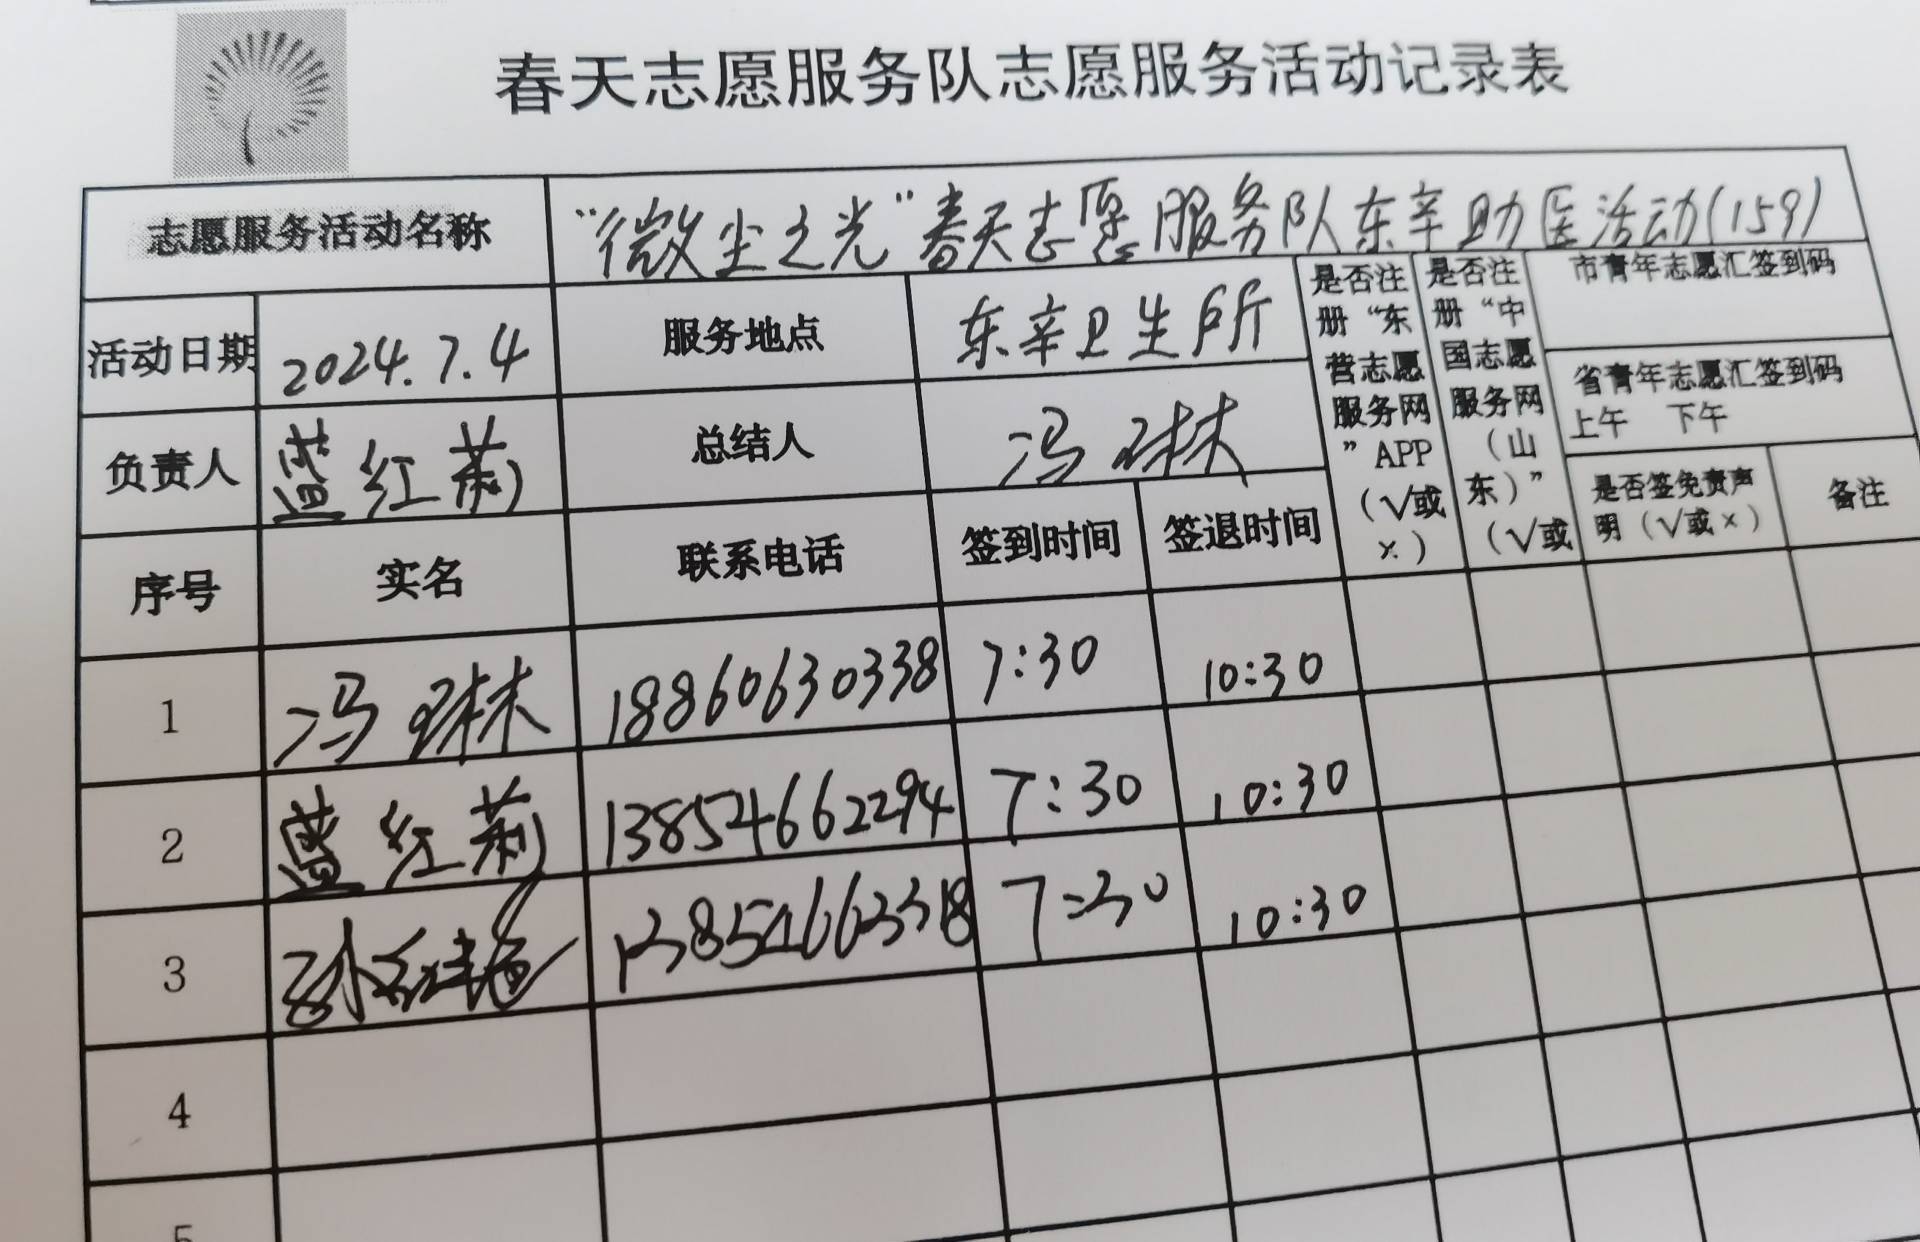 春天志愿服务队志愿服务活动记录表
志愿服务活动名称 "微尘之光"春天志愿服务队东辛助医活动(159)
活动日期 2024.7.4 服务地点 东辛卫生所
负责人 蓝红莉 总结人 冯琳
是否注册“东营志愿服务网”APP（√或×）
是否注册“中国志愿服务网（山东）”（√或
市青年志愿汇签到码
省青年志愿汇签到码
上午 下午
是否签免责声明（√或×） 备注
序号 实名 联系电话 签到时间 签退时间
1 冯琳 18860630338 7:30 10:30
2 蓝红莉 13854662294 7:30 10:30
3 孙红艳 13854662318 7:30 10:30
4
5